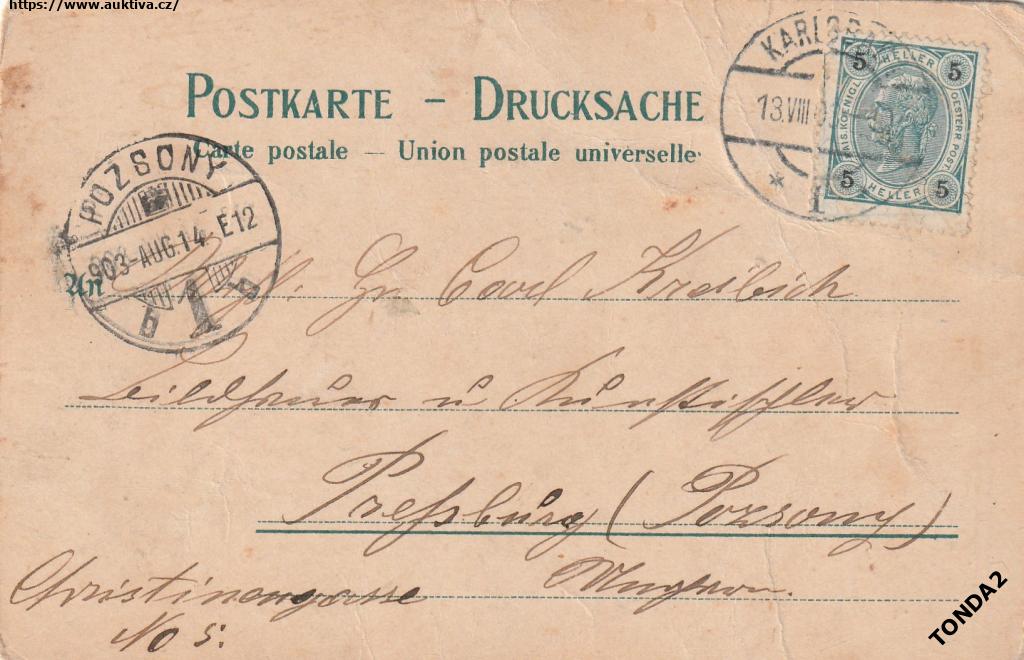 https://www.auktiva.cz/
POSTKARTE – DRUCKSACHE
Carte postale — Union postale universelle
KARLSB
13.VIII.0
1
5 HELLER 5
KAIS. KOENIGL. OESTERR. POST
5 HELLER 5
POZSONY
903-AUG.14 E12
b 1
An Hr. Carl Kreibich
Bildhauer u Kunstischler
Preßburg (Pozsony)
Ungarn.
Christinengasse
No 5.
TONDA2